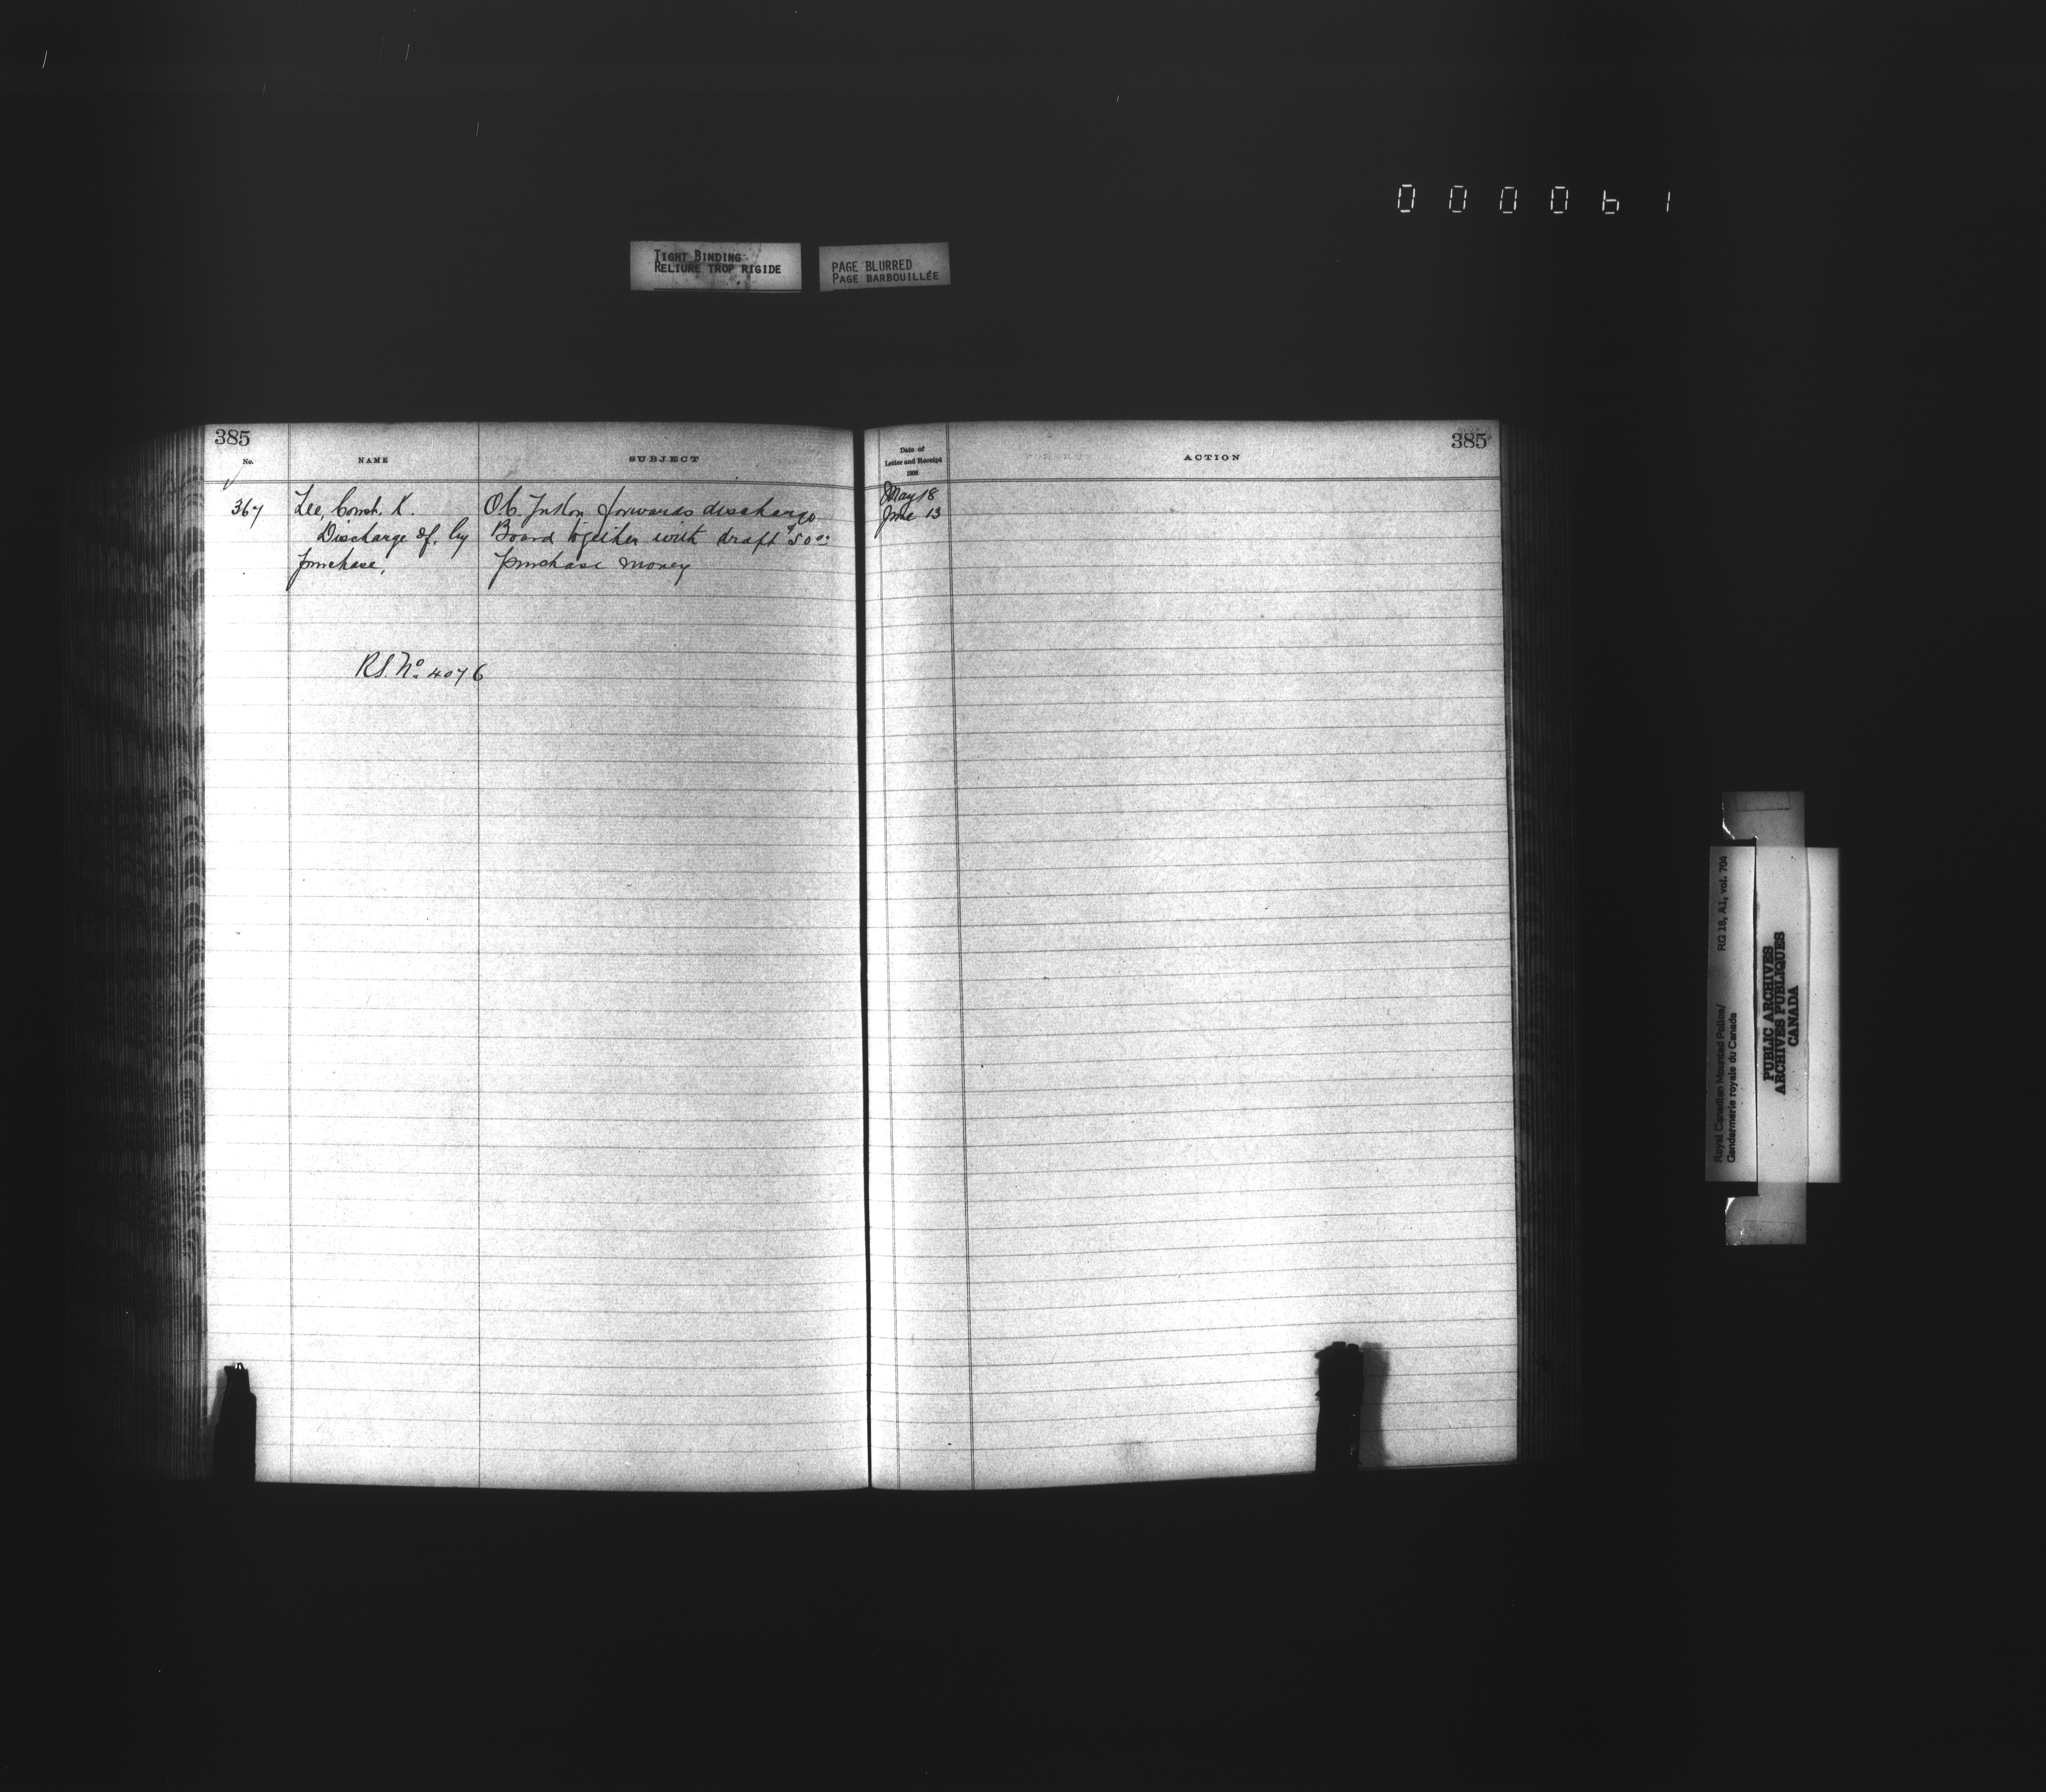 000061
TIGHT BINDING
RELIURE TROP RIGIDE
PAGE BLURRED
PAGE BARBOUILLÉE
385
No.
NAME
SUBJECT
367
Lee, Const. K.
Discharge of, by
purchase.
O.C. Yukon forwards discharge
Board together with draft $50.00
purchase money
R.S. No. 4076
385
Date of
Letter and Receipt
1908
ACTION
May 18
June 13
Royal Canadian Mounted Police/
Gendarmerie royale du Canada
RG 18, A1, vol. 704
PUBLIC ARCHIVES
ARCHIVES PUBLIQUES
CANADA